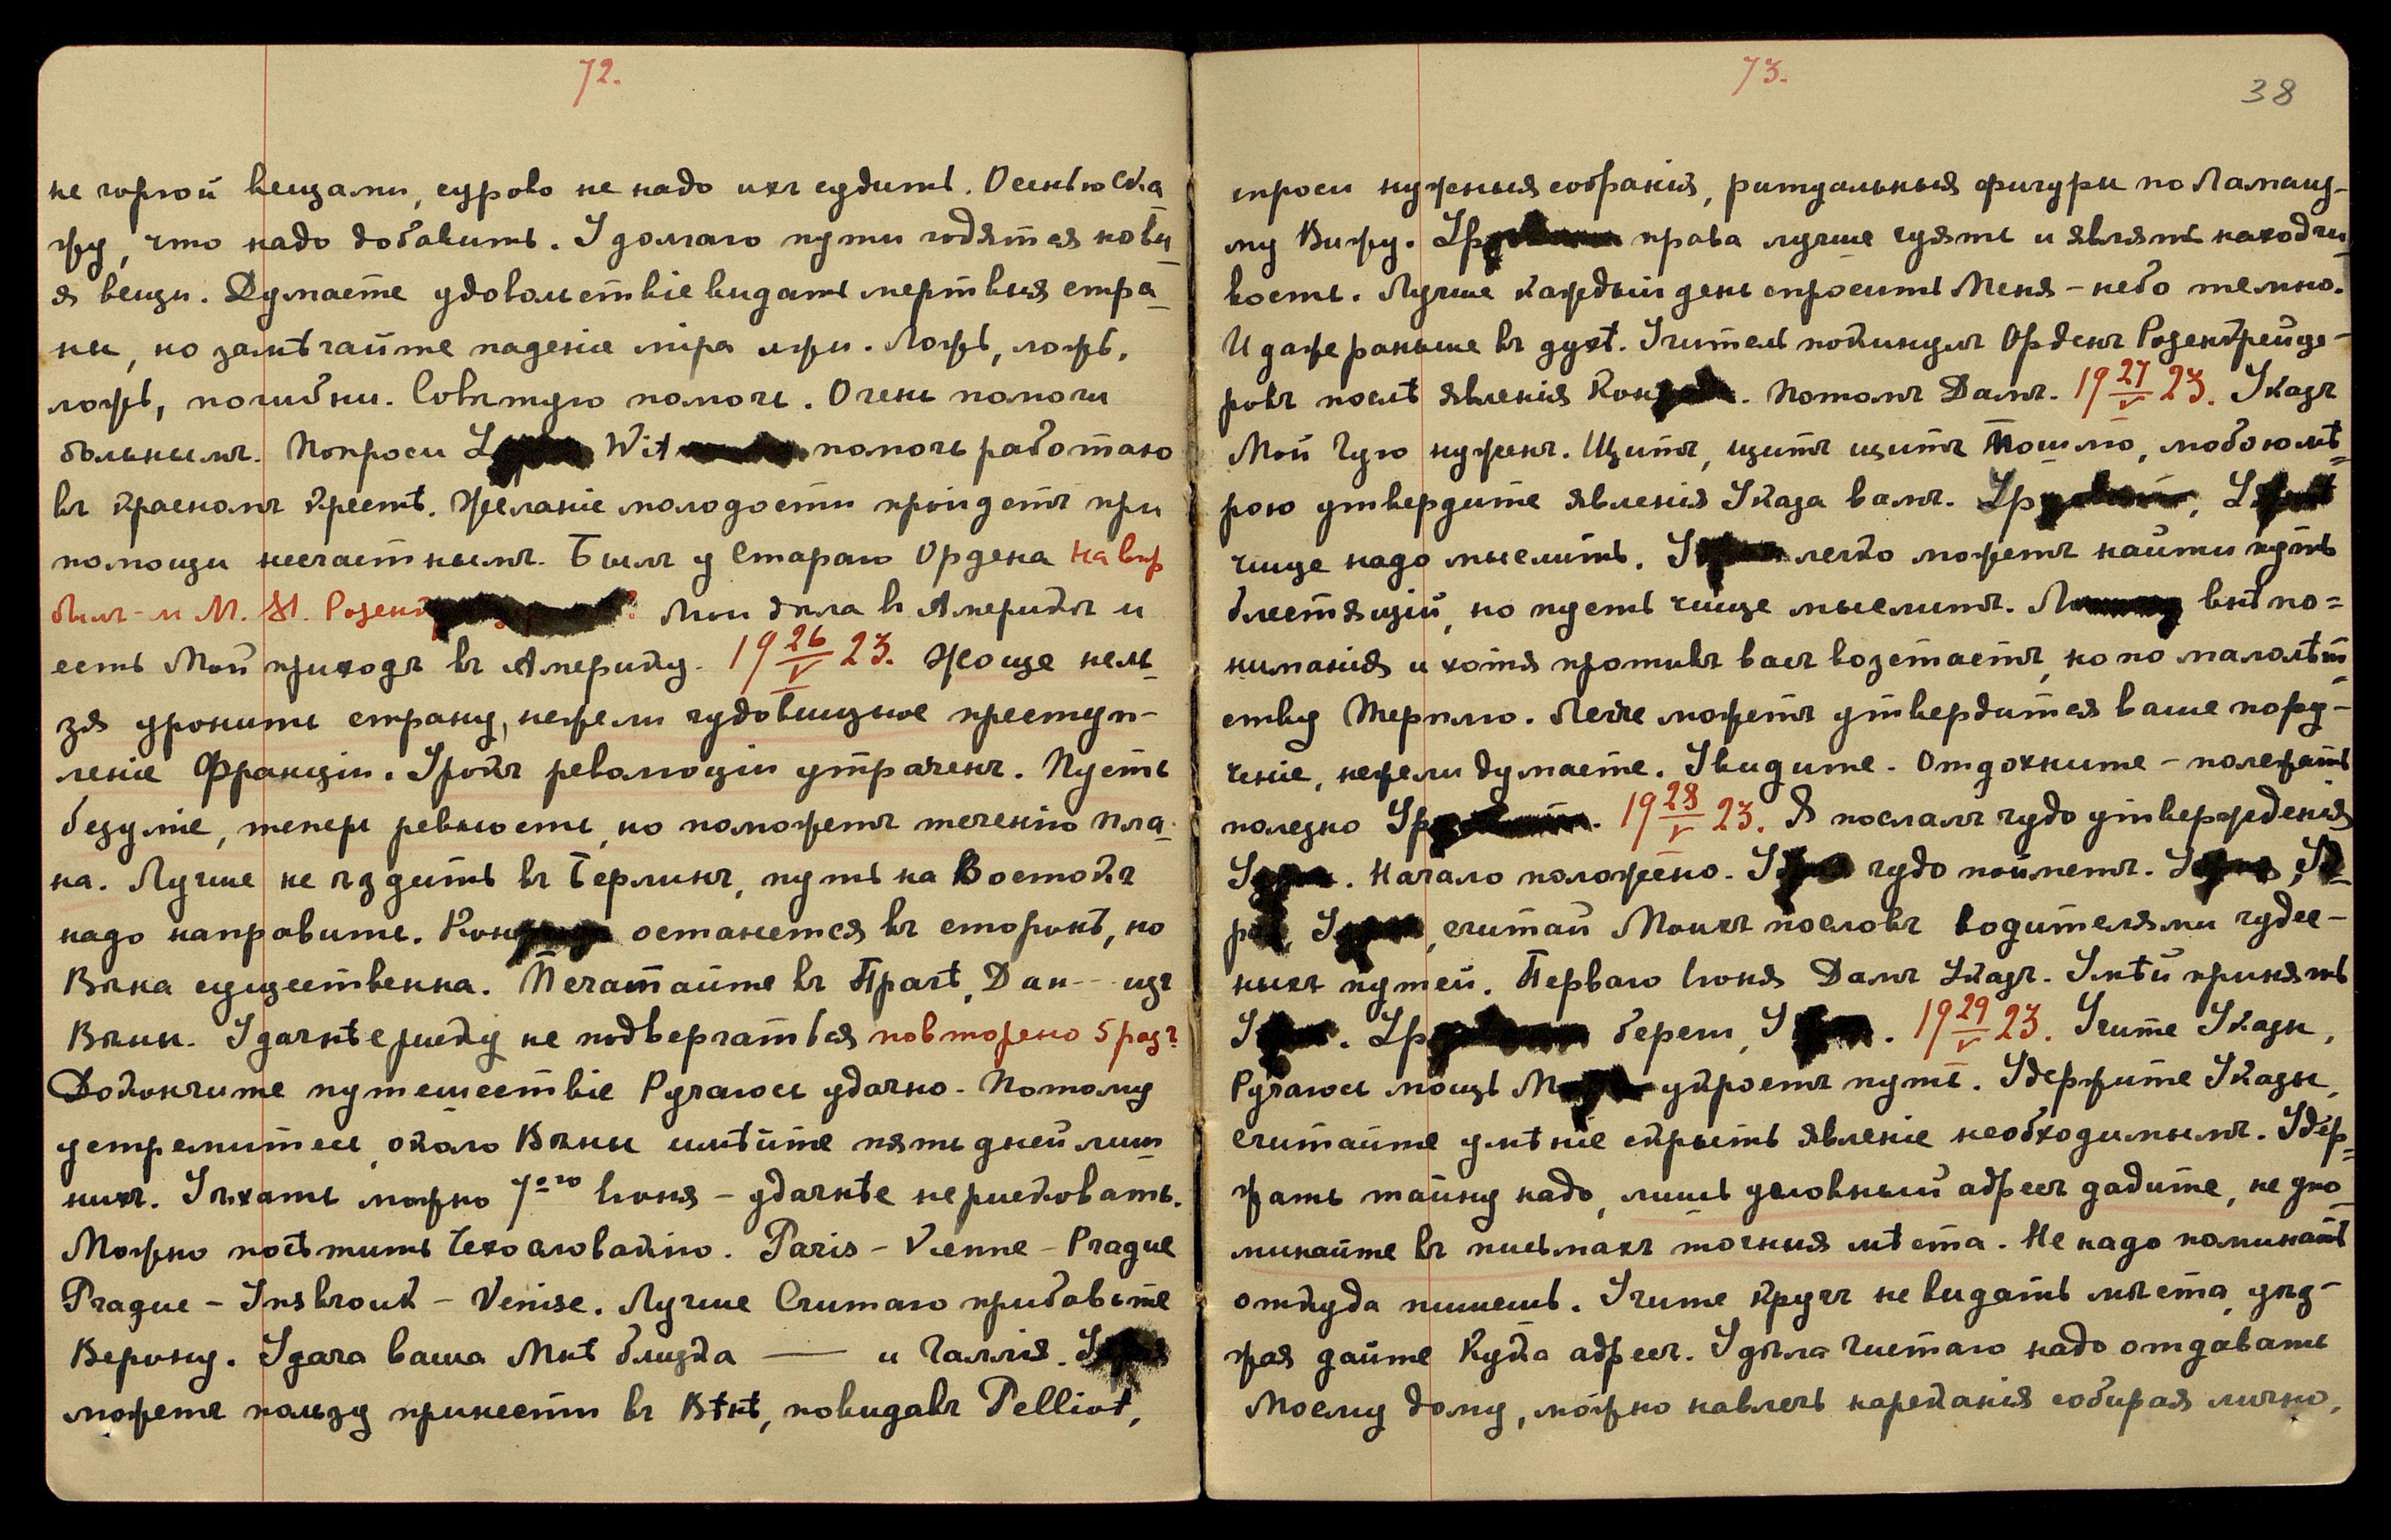 72.
не гоняй вещами, сурово не надо ихъ судить. Осенью ска
жу, что надо добавить. У долгаго пути годятся новы
я вещи. Думаете удовольствіе видать мертвыя стра
ны, но замѣчайте паденіе міра лжи. Ложь, ложь,
ложь, погибни. Совѣтую помочь. Очень помоги
больнымъ. Попроси L Wit помочь работаю
въ красномъ крестѣ. Желаніе молодости придетъ при
помощи несчастнымъ. Былъ у Стараго Ордена
былъ-ли М. Розенк ? Мои дѣла въ Америкѣ и
есть Мой приходъ въ Америку. 19 26/V 23. Жоще нель
зя уронить страну, нежели чудовищное преступ-
леніе Франціи. Урокъ революціи утраченъ. Пусть
безуміе, теперь ревность, но поможетъ теченію Пла
на. Лучше не ѣздить въ Берлинъ, путь на Востокъ
надо направить. Кон останется въ сторонѣ, но
Вѣна существенна. Печатайте въ Прагѣ, Дан--- изъ
Вѣны. Удачнѣе риску не подвергаться повторено 5 разъ
Докончите путешествіе Ручаюсь удачно. Потому
устремитесь, около Вѣны имѣйте пять дней лиш
нихъ. Уѣхать можно 7о го Іюня – удачнѣе не рисковать.
Можно посѣтить Чехословакію. Paris – Vienne – Prague
Prague – Insbrouk – Venise. Лучше Считаю прибавьте
Верону. Удача ваша Мнѣ близка —— и Галлія. У
можетъ пользу принести въ Вѣнѣ, повидавъ Pelliot,
73.
38
спроси нужныя собранія, ритуальныя фигуры по Ламаиз-
му Вижу. Lр права лучше чуять и являть находчи
вость. Лучше каждый день спросить Меня – небо темно.
И даже раньше въ духѣ. Учитель покинулъ Орденъ Розенкрейце-
ровъ послѣ явленія Кон . Потомъ Дамъ. 19 27/V 23. Указъ
Мой Чую нуженъ. Щитъ, щитъ щитъ Пошлю, мобою мѣ
рою утвердите явленія Указа вамъ. Lр , L
чище надо мыслить. У легко можетъ найти путь
блестящій, но пусть чище мыслитъ. Л внѣ по=
ниманія и хотя противъ васъ возстаетъ, но по малолѣт
ству Терплю. Легче можетъ утвердится ваше пору-
ченіе, нежели думаете. Увидите. Отдохните – полежать
полезно Lр . 19 28/V 23. Я послалъ чудо утвержденія
У . Начало положено. У чудо пойметъ. У , У
р , У , считай Моихъ пословъ водителями чудес-
ныхъ путей. Перваго Іюня Дамъ Указъ. Умѣй принять
У . Lр береги, У . 19 29/V 23. Учите Указы,
Ручаюсь мощь М укроетъ путь. Удержите Указы,
считайте умѣніе скрыть явленіе необходимымъ. Удер
жать тайну надо, лишь условный адресъ дадите, не упо
минайте въ письмахъ точныя мѣста. Не надо поминать
откуда пишешь. Учите кругъ не видать мѣста, уѣз-
жая дайте Кука адресъ. У дѣла чистаго надо отдавать
Моему дому, можно навлечь нареканія собирая лично,